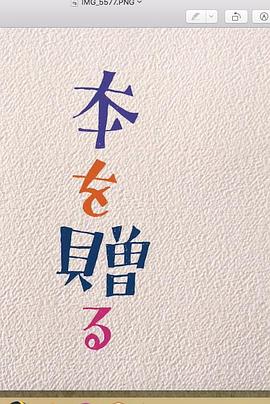 IMG_5577.PNG
本を贈る